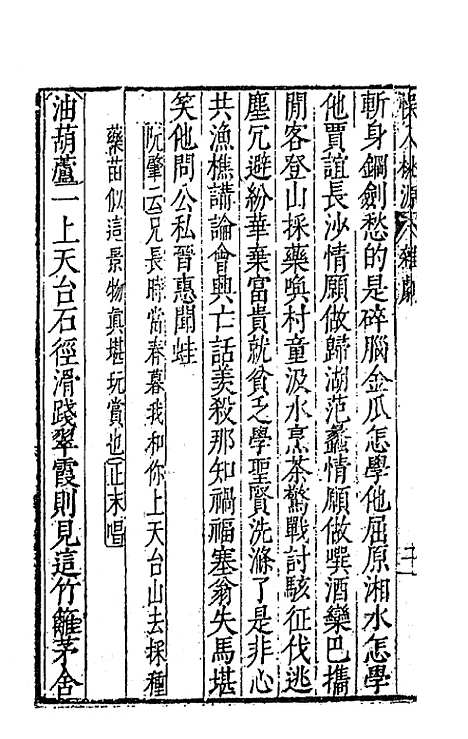 誤入桃源 雜劇 十一
斬身鋼劍愁的是碎腦金瓜怎學他屈原湘水怎學
他賈誼長沙情願做歸湖范蠡情願做噀酒欒巴攜
閒客登山採藥喚村童汲水烹茶驚戰討駭征伐逃
塵冗避紛華棄富貴就貧乏學聖賢洗滌了是非心
共漁樵講論會興亡話羡殺那知禍福塞翁失馬堪
笑他問公私晉惠聞蛙
阮肇云兄長時當春暮我和你上天台山去採種
藥苗似這景物真堪玩賞也正末唱
油葫蘆一上天台石徑滑踐翠霞則見這竹籬茅舍